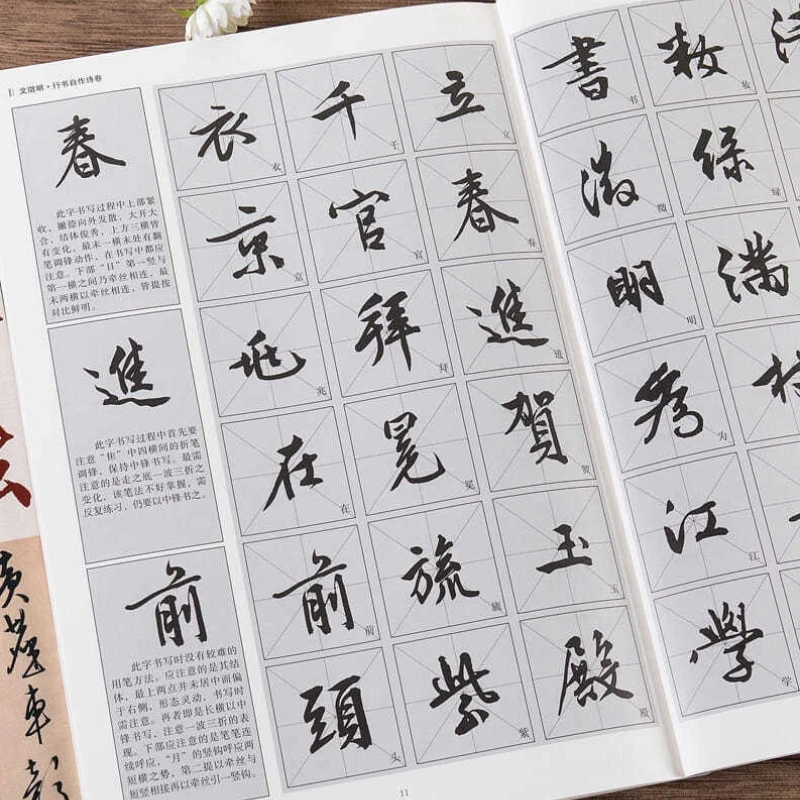 文徵明·行书自作诗卷
春
此字书写过程中上部紧
收，撇捺向外发散，大开大
合，结体俊秀，上方三横皆
有变化，最末一横末处有翻
笔调锋动作，在书写中都应
注意。下部“日”第一竖与
第一横之间乃牵丝相连，最
末两横以牵丝相连，皆提按
对比鲜明。
進
此字书写过程中首先要
注意“隹”中四横间的折笔
调锋，保持中锋书写。最需
注意的是走之底一波三折之
变化，该笔法不好掌握，需
反复练习，仍要以中锋书之。
前
此字书写时没有较难的
用笔方法。应注意的是其结
体，最上两点并未居中而偏
于右侧，形态灵动，书写时
需注意。再者即是长横以中
锋书写，注意一波三折的表
现。下部应注意的是笔笔连
续呼应，“月”的竖钩呼应两
短横之势，第二提以牵丝与
短竖相接再以牵丝引一竖钩。
衣 千 立
衣 千 立
京 官 春
京 官 春
兆 拜 進
兆 拜 进
在 冕 賀
在 冕 贺
前 旒 玉
前 旒 玉
頭 紫 殿
头 紫 殿
11
書
书
微 緑
微 绿
明 满
明
為
为
江
江
學
学
車